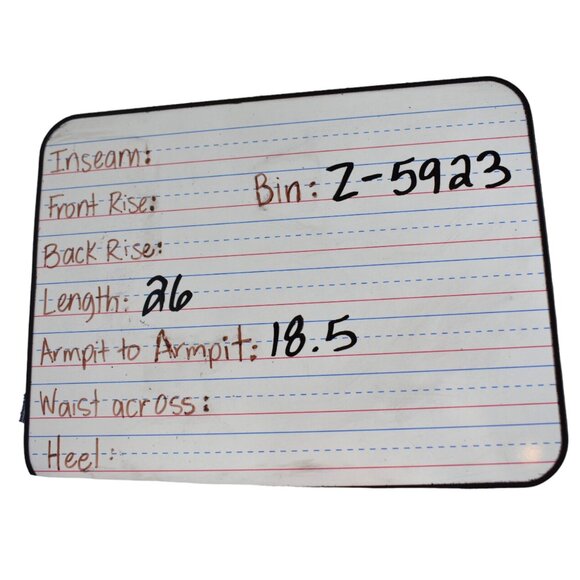 Inseam:
Front Rise:
Bin: Z-5923
Back Rise:
Length: 26
Armpit to Armpit: 18.5
Waist across:
Heel: